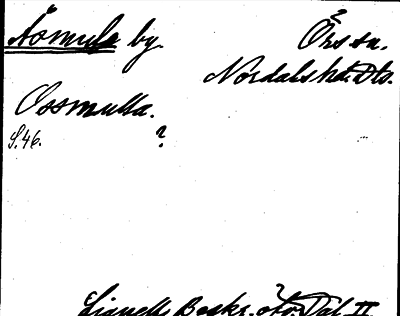 Åsmula by. Örs sn.
Nordals hd. Dls.
Ossmulla.
S. 46. ?
Lignell, Beskr. öfv. Dal II